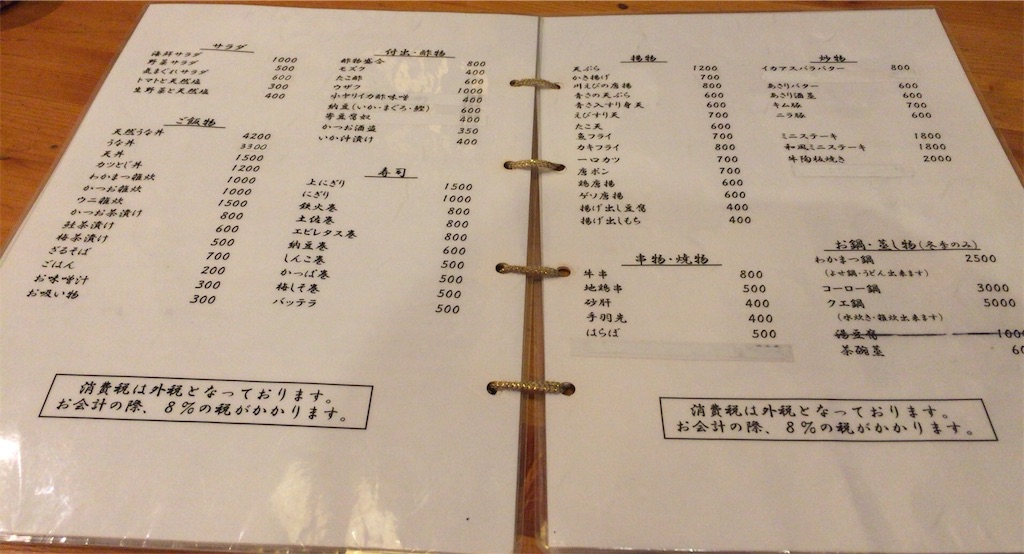 サラダ
海鮮サラダ 1000
野菜サラダ 500
気まぐれサラダ 600
トマトと天然塩 300
生野菜と天然塩 400
ご飯物
天然うな丼 4200
うな丼 3300
天丼 1500
カツとじ丼 1200
わかまつ雑炊 1000
かつお雑炊 1000
ウニ雑炊 1500
かつお茶漬け 800
鮭茶漬け 600
梅茶漬け 500
ざるそば 700
ごはん 200
お味噌汁 300
お吸い物 300
付出・酢物
酢物盛合 800
モズク 400
たこ酢 600
ウザク 1000
小ヤリイカ酢味噌 400
納豆(いか・まぐろ・鰹) 600
寄豆腐奴 400
かつお酒盗 350
いか汁漬け 400
寿司
上にぎり 1500
にぎり 1000
鉄火巻 800
土佐巻 800
エビレタス巻 800
納豆巻 600
しんこ巻 500
かっぱ巻 500
梅しそ巻 500
バッテラ 500
消費税は外税となっております。
お会計の際、8%の税がかかります。
揚物
天ぷら 1200
かき揚げ 700
川えびの唐揚 800
青さの天ぷら 600
青さ入すり身天 600
えびすり天 700
たこ天 600
魚フライ 700
カキフライ 800
一口カツ 700
唐ポン 700
鶏唐揚 600
ゲソ唐揚 600
揚げ出し豆腐 400
揚げ出しもち 400
串物・焼物
牛串 800
地鶏串 500
砂肝 400
手羽先 400
はらぼ 500
炒物
イカアスパラバター 800
あさりバター 600
あさり酒蒸 600
キム豚 700
ニラ豚 600
ミニステーキ 1800
和風ミニステーキ 1800
牛陶板焼き 2000
お鍋・蒸し物(冬季のみ)
わかまつ鍋 2500
(よせ鍋・うどん出来ます)
コーロー鍋 3000
クエ鍋 5000
(水炊き・雑炊出来ます)
湯豆腐 1000
茶碗蒸
消費税は外税となっております。
お会計の際、8%の税がかかります。